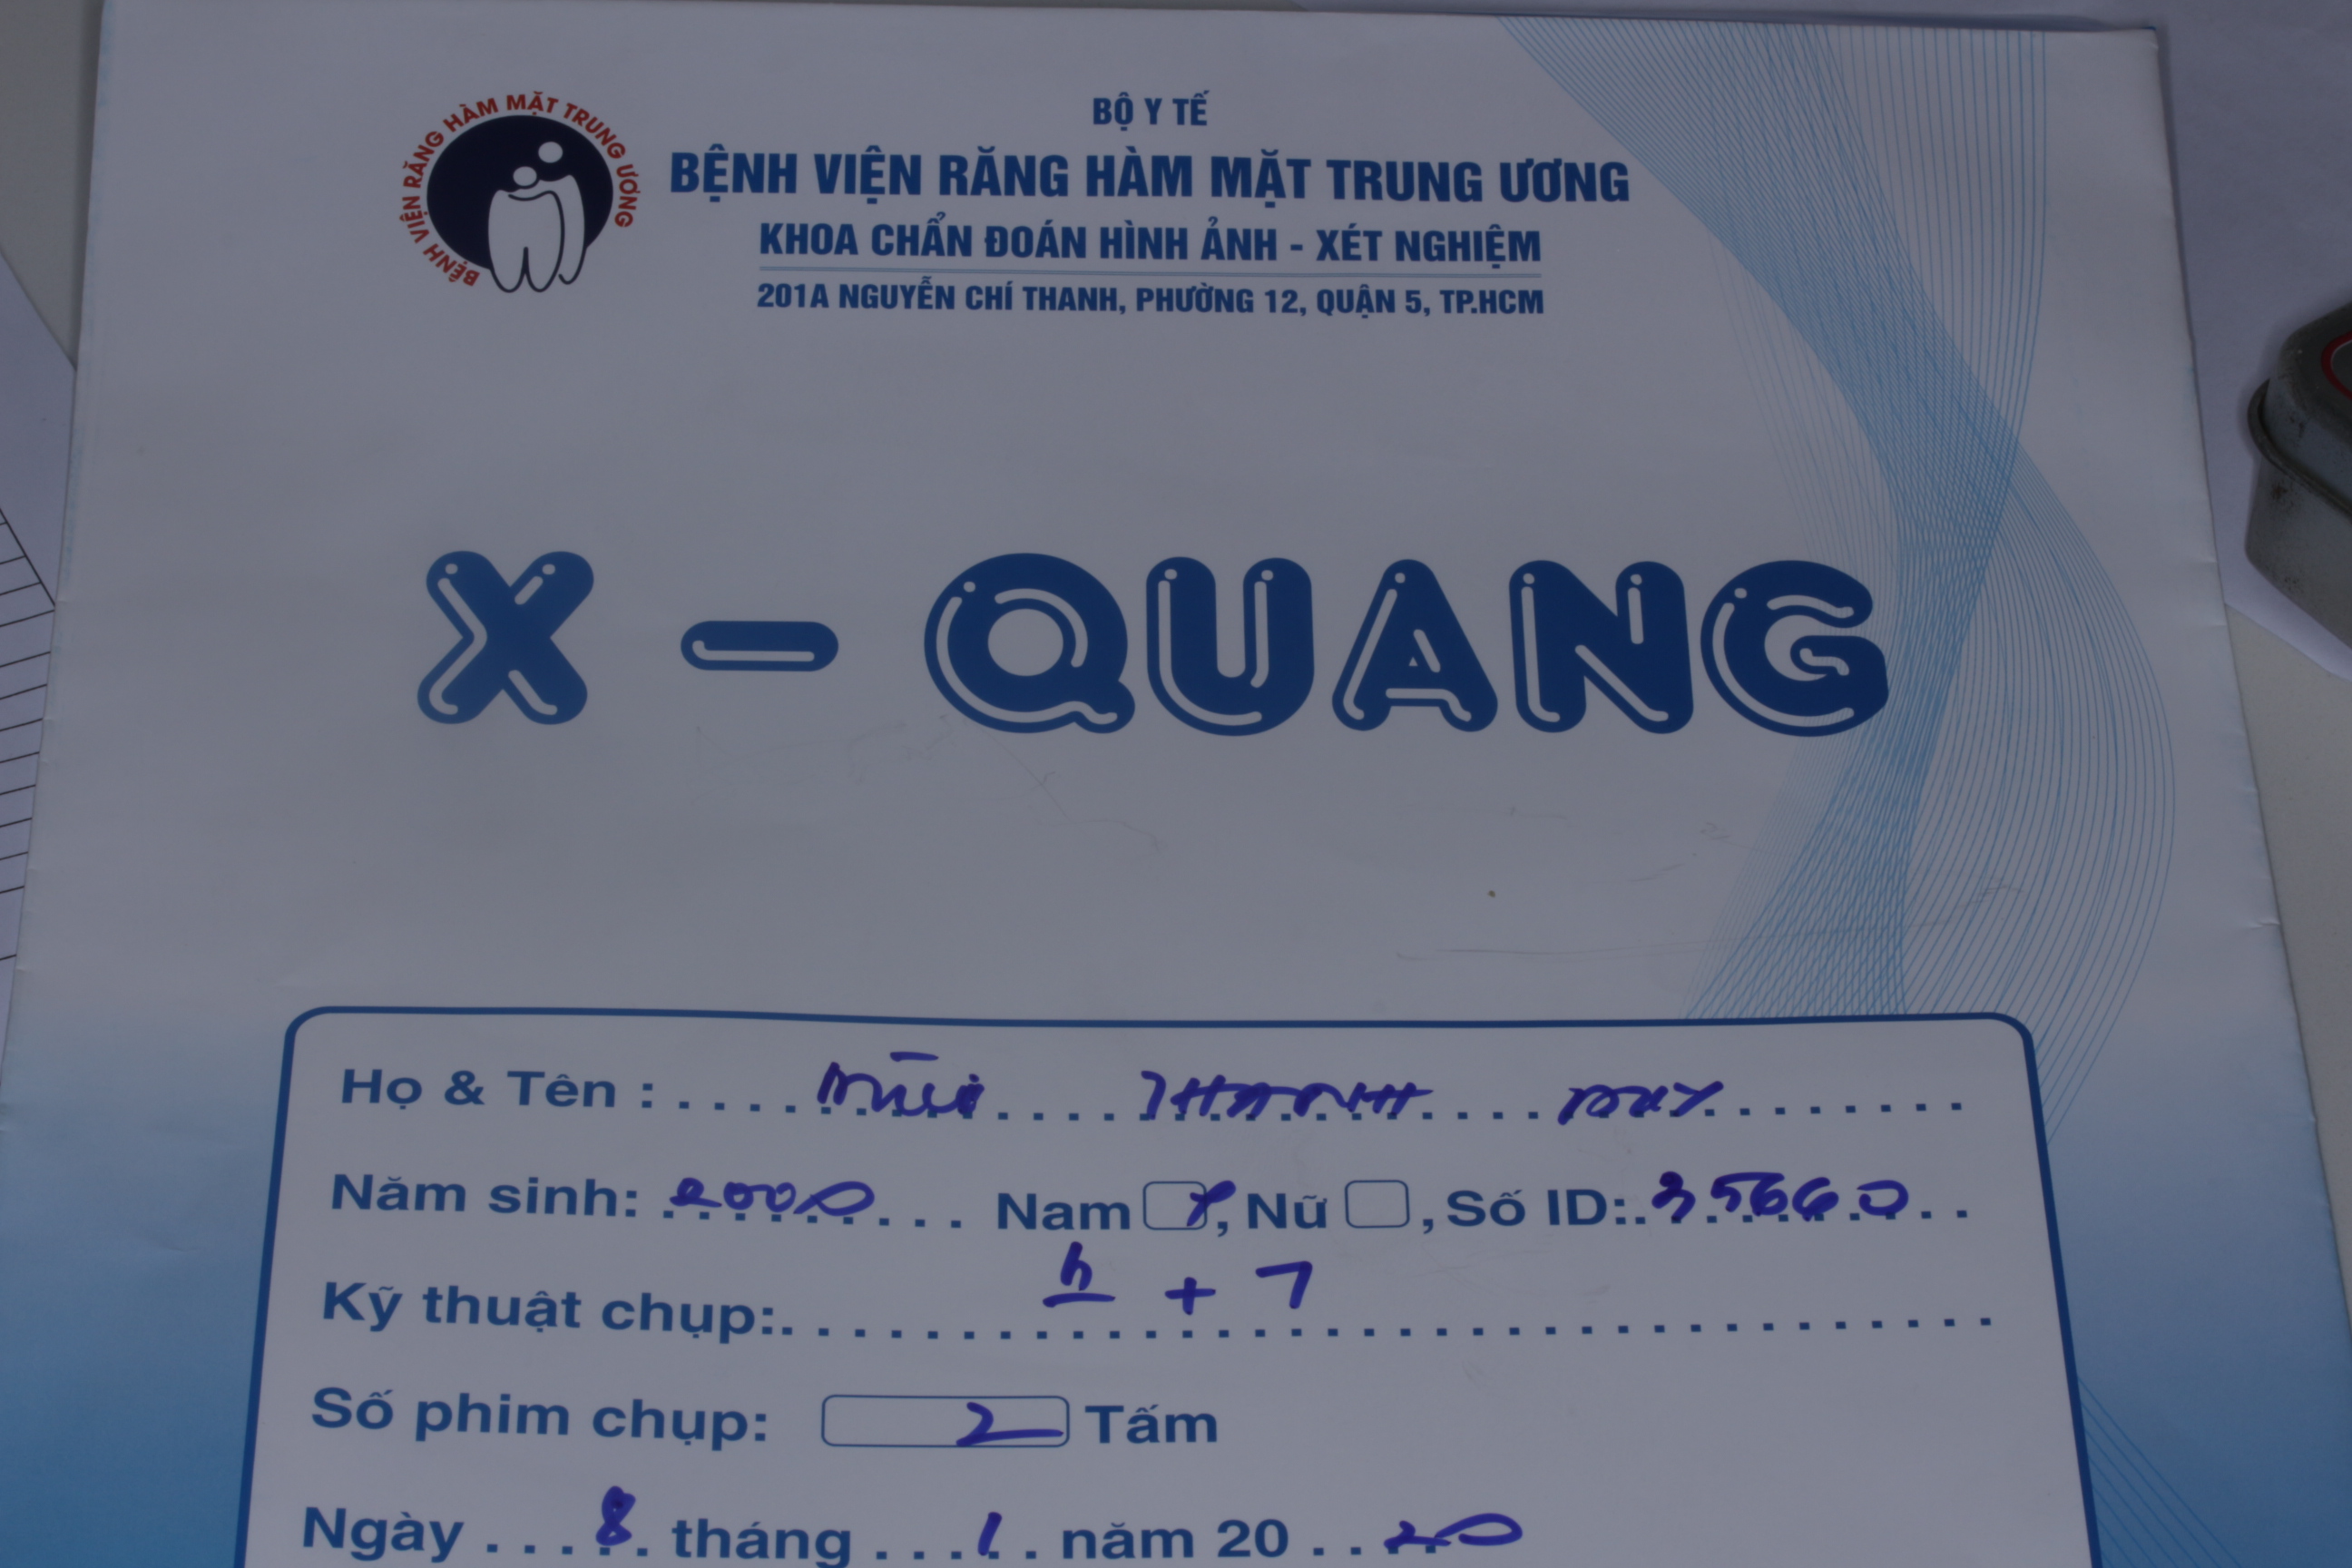 BỆNH VIỆN RĂNG HÀM MẶT TRUNG ƯƠNG
BỘ Y TẾ
BỆNH VIỆN RĂNG HÀM MẶT TRUNG ƯƠNG
KHOA CHẨN ĐOÁN HÌNH ẢNH - XÉT NGHIỆM
201A NGUYỄN CHÍ THANH, PHƯỜNG 12, QUẬN 5, TP.HCM
X - QUANG
Họ & Tên : THANH DUY
Năm sinh: 2000 Nam , Nữ , Số ID: 35660
Kỹ thuật chụp: + 7
Số phim chụp: 2 Tấm
Ngày 8 tháng 1 năm 20 20